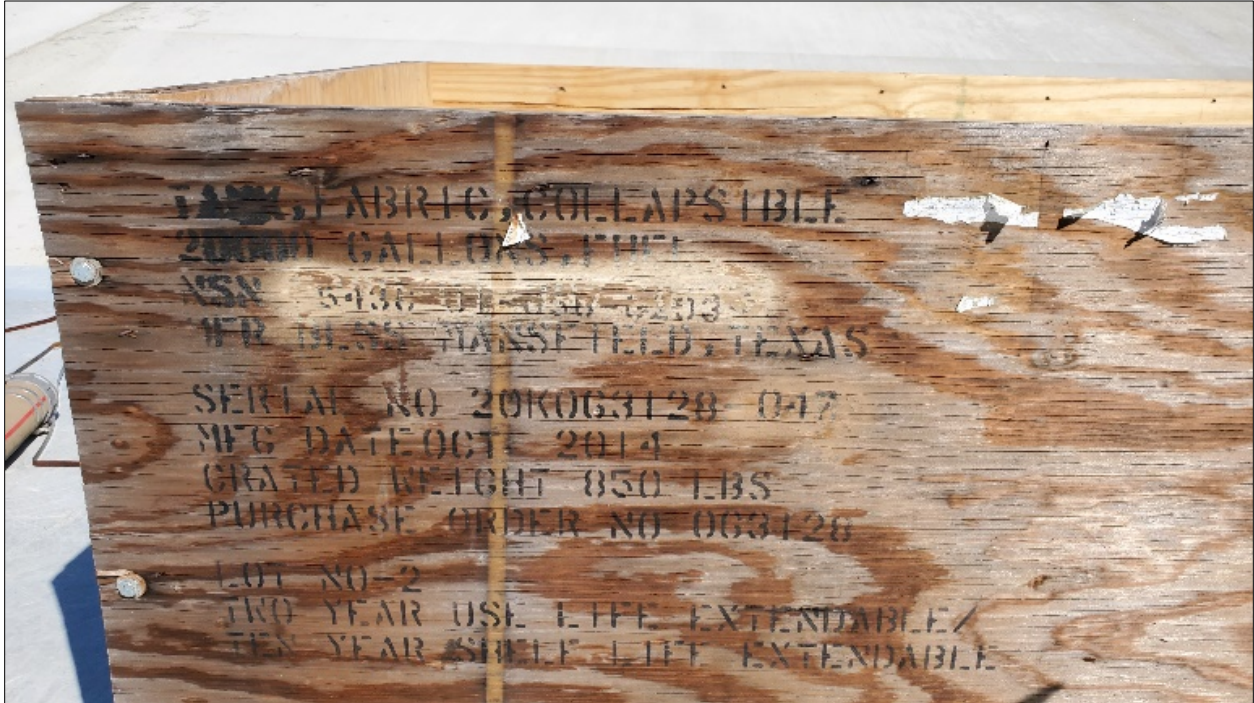 TANK, FABRIC, COLLAPSIBLE
GALLONS, FUEL
NSN 5430 01
MFR BLSS MANSFIELD, TEXAS
SERIAL NO 20K063128 047
MFG DATE OCT 2014
CRATED WEIGHT 850 LBS
PURCHASE ORDER NO 063128
LOT NO-2
TWO YEAR USE LIFE EXTENDABLE/
TEN YEAR SHELF LIFE EXTENDABLE